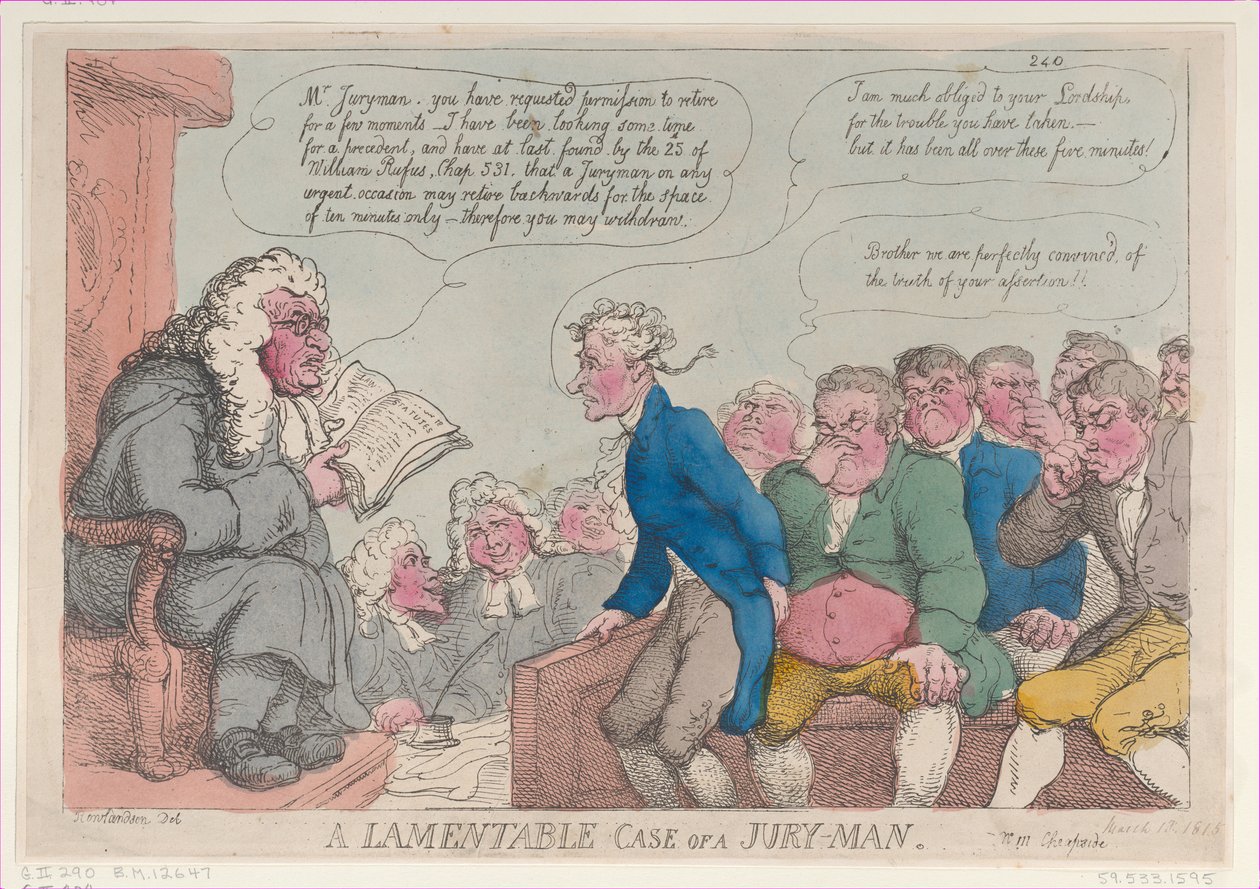 240
Mr. Juryman. you have requested permission to retire
for a few moments – I have been looking some time
for a precedent, and have at last found by the 25 of
William Rufus, Chap 531. that a Juryman on any
urgent occasion may retire backwards for the space
of ten minutes only – therefore you may withdraw.
I am much obliged to your Lordship,
for the trouble you have taken. –
but it has been all over these five minutes!
Brother we are perfectly convinc'd, of
the truth of your assertion!!
STATUTES
Rowlandson Del
A LAMENTABLE CASE OF A JURY-MAN.
No 111 Cheapside
March 1st. 1815
G.II.290 B.M.12647
59.533.1595